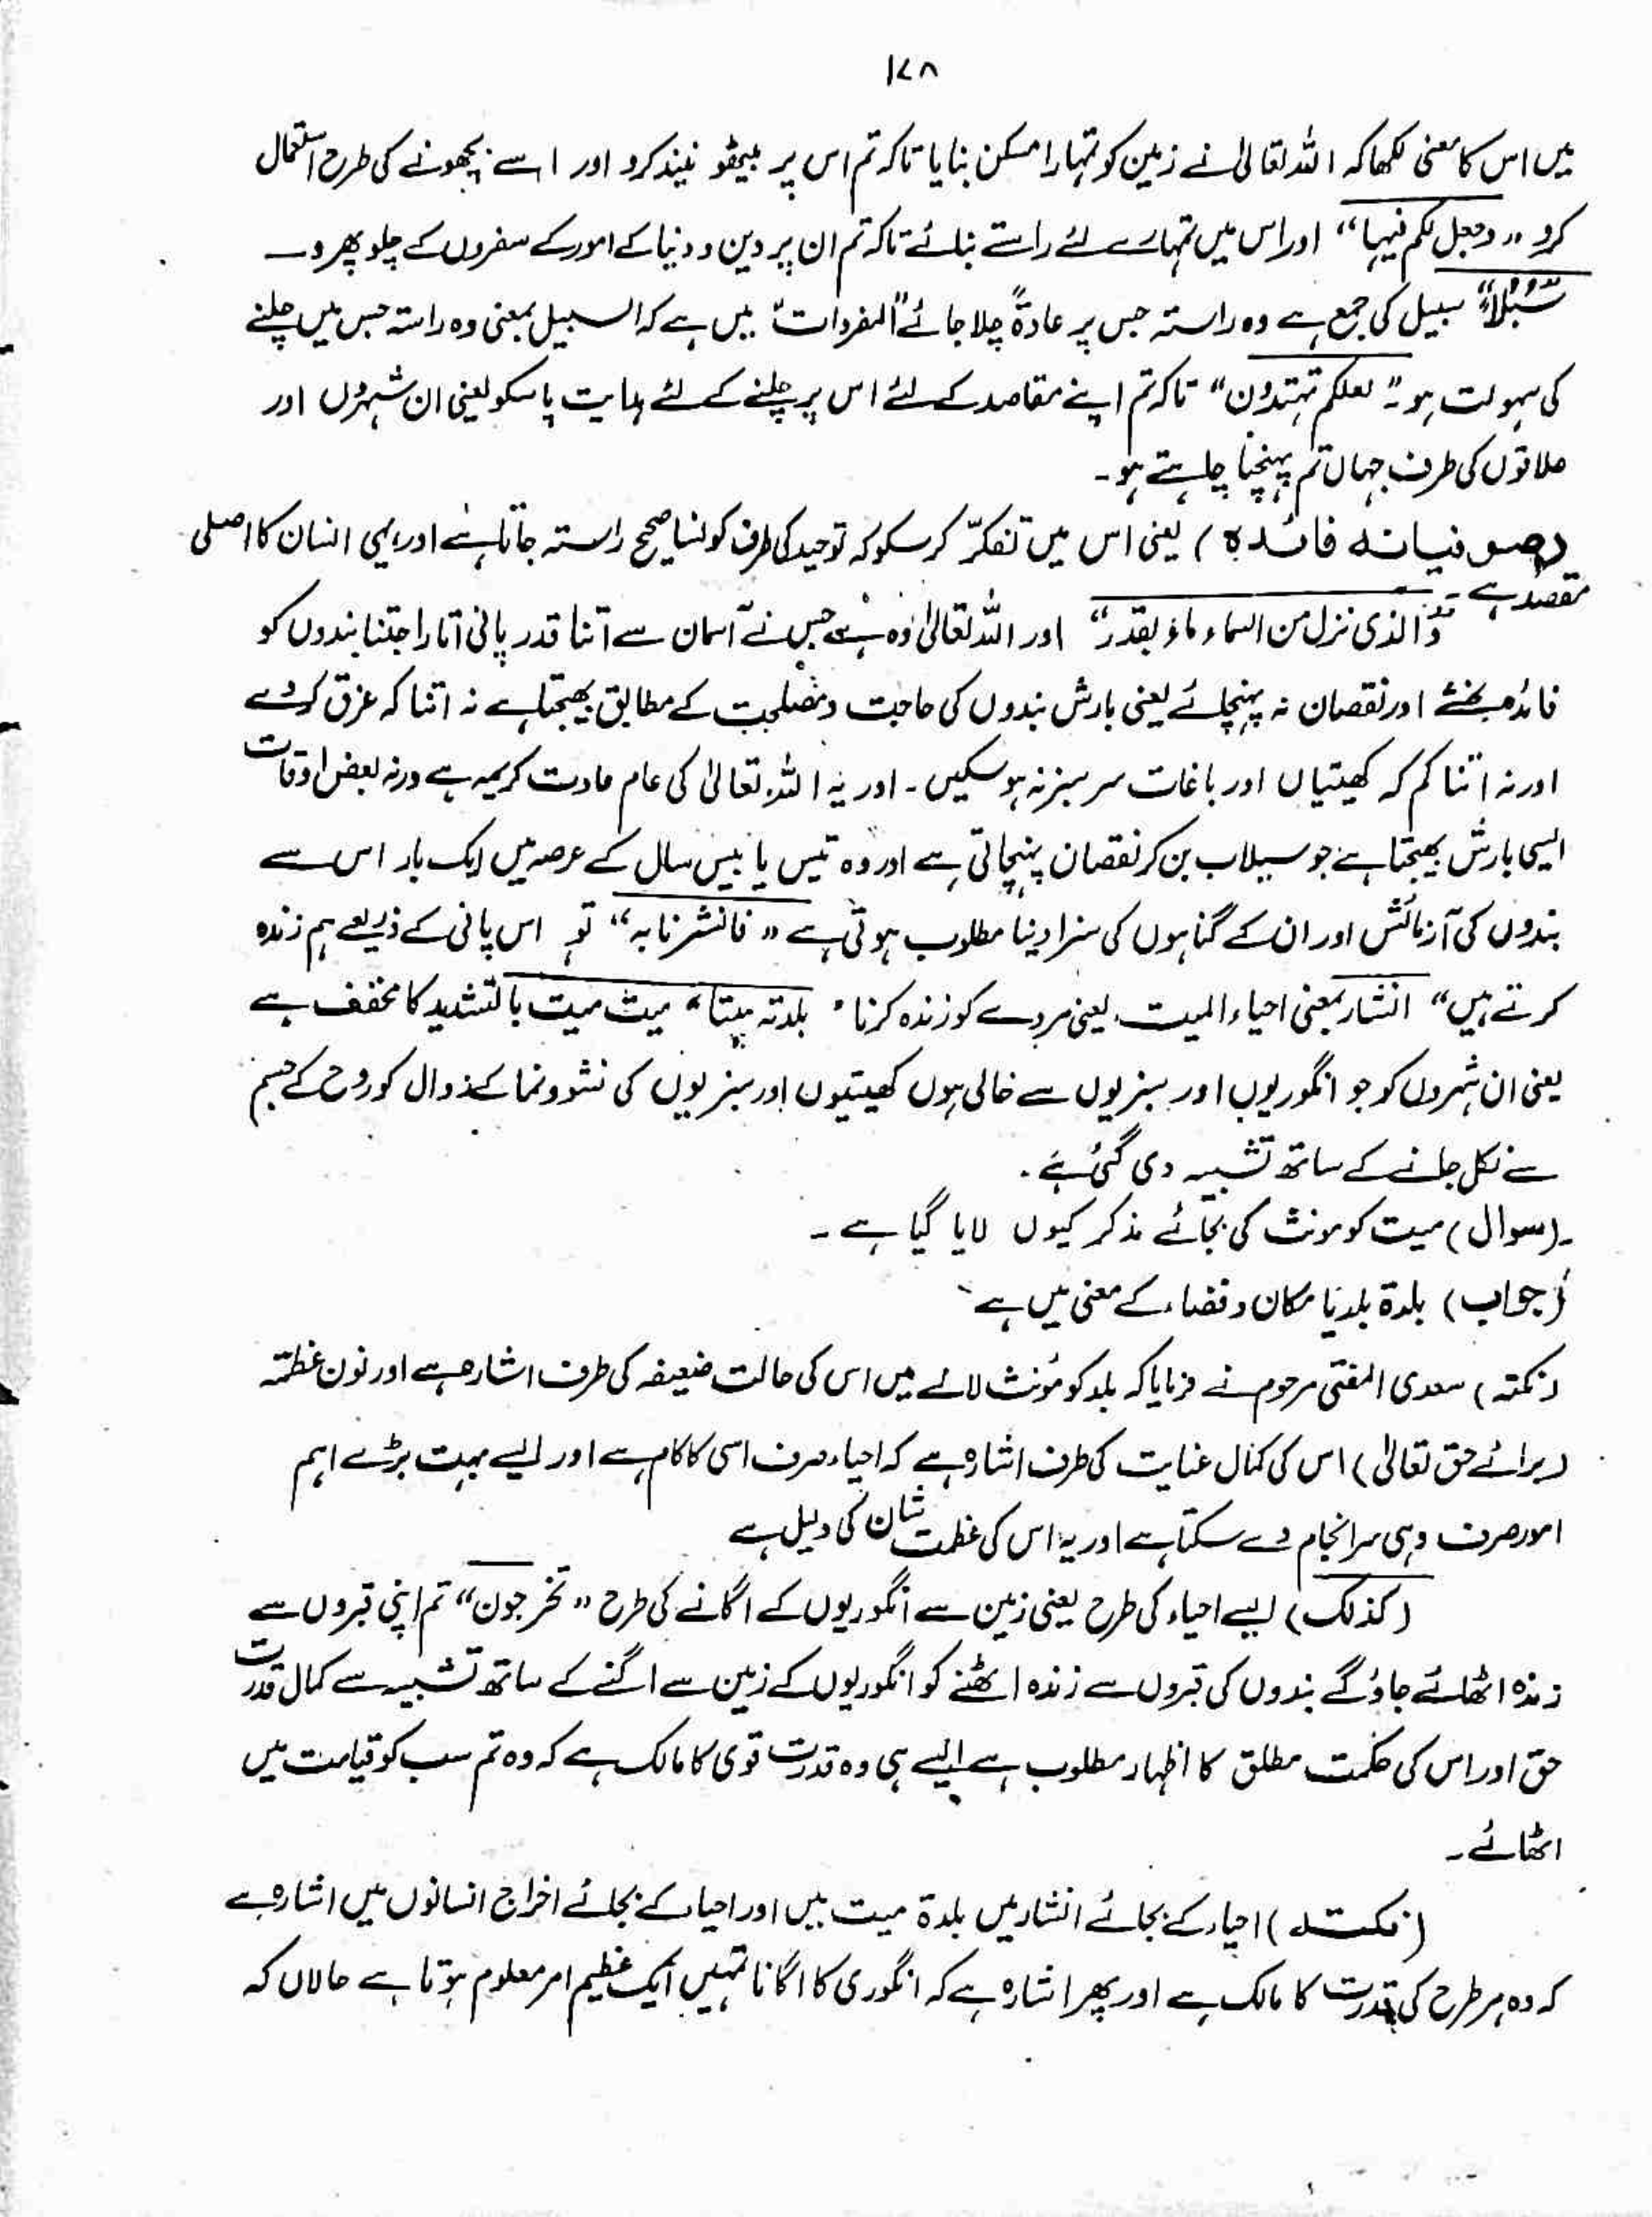 ۱۷۸
میں اس کا معنی لکھا کہ اللہ تعالیٰ نے زمین کو تمہارا مسکن بنایا تاکہ تم اس پر بیٹھو نیند کرو اور اسے بچھونے کی طرح استعمال
کرو „ وجعل لکم فیہا“ اور اس میں تمہارے لئے راستے بنائے تاکہ تم ان پر دین و دنیا کے امور کے سفروں کے چلو پھرو۔
سُبُلاً“ سبیل کی جمع ہے وہ راستہ جس پر عادۃً چلا جائے ”المفردات“ میں ہے کہ السبیل بمعنی وہ راستہ جس میں چلنے
کی سہولت ہو۔“ لعلکم تہتدون“ تاکہ تم اپنے مقاصد کے لئے اس پر چلنے کے لئے ہدایت پا سکو یعنی ان شہروں اور
علاقوں کی طرف جہاں تم پہنچنا چاہتے ہو۔
(صوفیانہ فائدہ) یعنی اس میں تفکّر کر سکو کہ توحید کی طرف کونسا صحیح راستہ جاتا ہے اور یہی انسان کا اصلی
مقصد ہے
”والذی نزل من السماء ماء بقدر“ اور اللہ تعالیٰ وہ ہے جس نے آسمان سے اتنا قدر پانی اتارا جتنا بندوں کو
فائدہ بخشے اور نقصان نہ پہنچائے یعنی بارش بندوں کی حاجت و مصلحت کے مطابق بھیجتا ہے نہ اتنا کہ غرق کر دے
اور نہ اتنا کم کہ کھیتیاں اور باغات سرسبز نہ ہو سکیں۔ اور یہ اللہ تعالیٰ کی عام عادت کریمہ ہے ورنہ بعض اوقات
ایسی بارش بھیجتا ہے جو سیلاب بن کر نقصان پہنچاتی ہے اور وہ تیس یا بیس سال کے عرصہ میں ایک بار اس سے
بندوں کی آزمائش اور ان کے گناہوں کی سزا دینا مطلوب ہوتی ہے „ فانشرنا بہ“ تو اس پانی کے ذریعے ہم زندہ
کرتے ہیں“ انشار بمعنی احیاء المیت یعنی مردے کو زندہ کرنا ” بلدتہ میتا“ میت میت بالتشدید کا مخفف ہے
یعنی ان شہروں کو جو انگوریوں اور سبزیوں سے خالی ہوں کھیتیوں اور سبزیوں کی نشوونما کے زوال کو روح کے جسم
سے نکل جانے کے ساتھ تشبیہ دی گئی ہے۔
(سوال) میت کو مونث کی بجائے مذکر کیوں لایا گیا ہے۔
(جواب) بلدۃ بلد یا مکان و فضاء کے معنی میں ہے
(نکتہ) سعدی المفتی مرحوم نے فرمایا کہ بلد کو مؤنث لانے میں اس کی حالت ضعیفہ کی طرف اشارہ ہے اور نون عظمتہ
(برائے حق تعالیٰ) اس کی کمال عنایت کی طرف اشارہ ہے کہ احیاء صرف اسی کا کام ہے اور ایسے بہت بڑے اہم
امور صرف وہی سرانجام دے سکتا ہے اور یہ اس کی عظمت شان کی دلیل ہے
(کذلک) ایسے احیاء کی طرح یعنی زمین سے انگوریوں کے اگانے کی طرح „ تخرجون“ تم اپنی قبروں سے
زندہ اٹھائے جاؤ گے بندوں کی قبروں سے زندہ اٹھنے کو انگوریوں کے زمین سے اگنے کے ساتھ تشبیہ سے کمال قدرت
حق اور اس کی حکمت مطلق کا اظہار مطلوب ہے ایسے ہی وہ قدرت قوی کا مالک ہے کہ وہ تم سب کو قیامت میں
اٹھائے۔
(نکتہ) احیاء کے بجائے انشار میں بلدۃ میت میں اور احیاء کے بجائے اخراج انسانوں میں اشارہ ہے
کہ وہ ہر طرح کی قدرت کا مالک ہے اور پھر اشارہ ہے کہ انگوری کا اگانا تمہیں ایک عظیم امر معلوم ہوتا ہے حالاں کہ